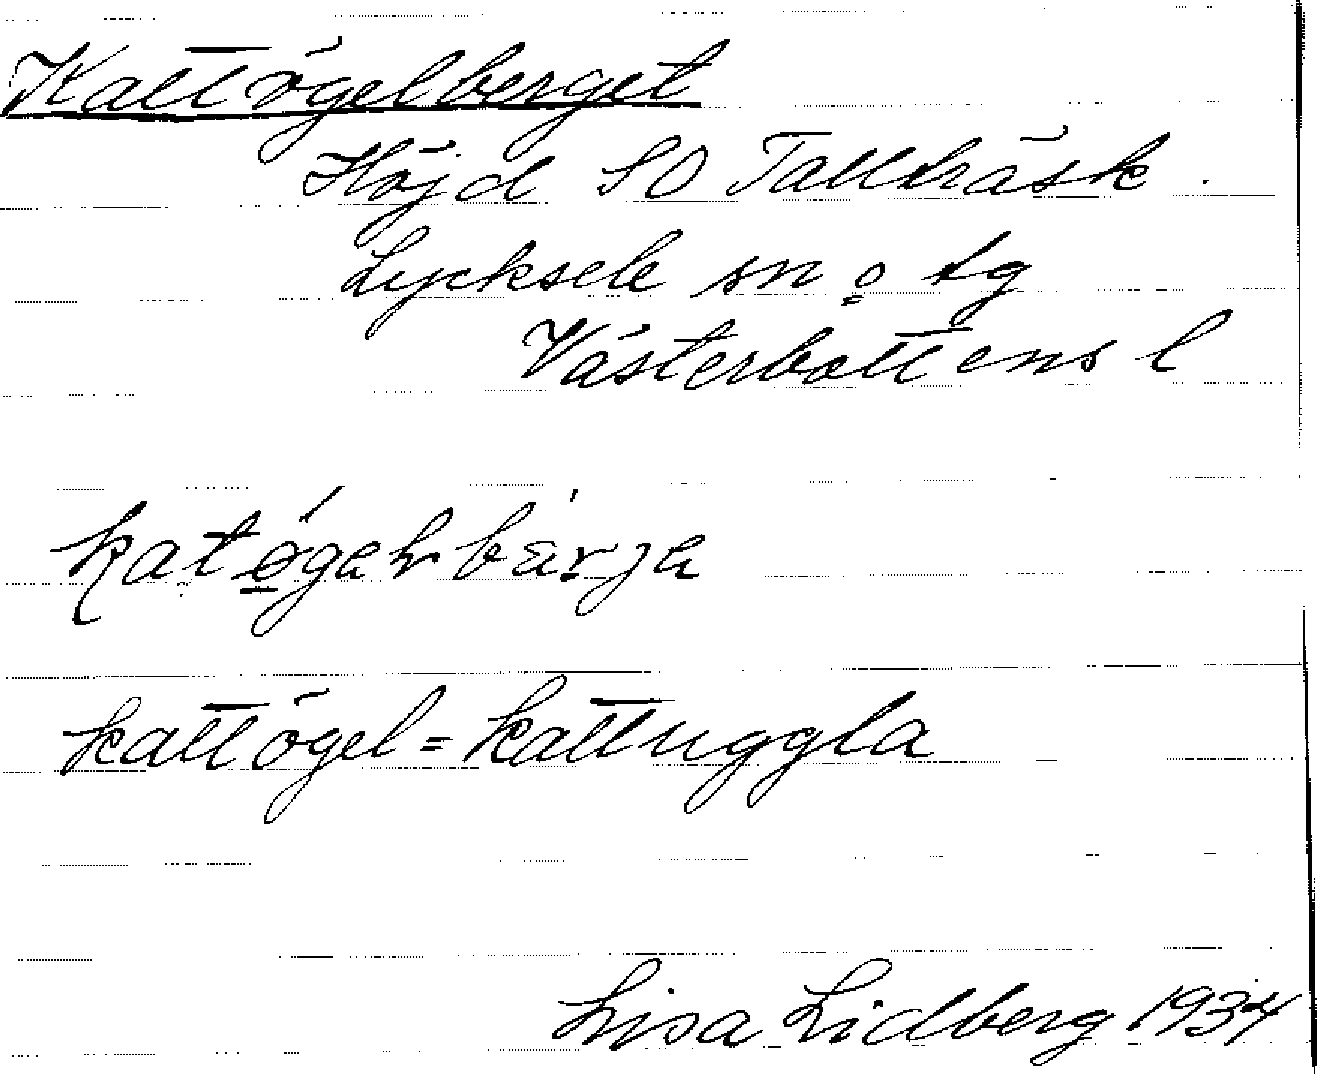 Kattögelberget
Höjd SO Tallträsk.
Lycksele sn o tg
Västerbottens l
kattögel = kattuggla
Lisa Lidberg 1934